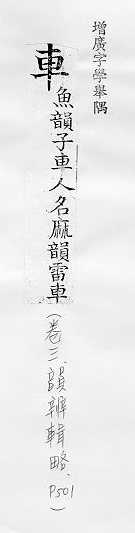 增廣字學舉隅
車魚韻子車人名麻韻雷車
(卷三、韻辨輯略、P501)